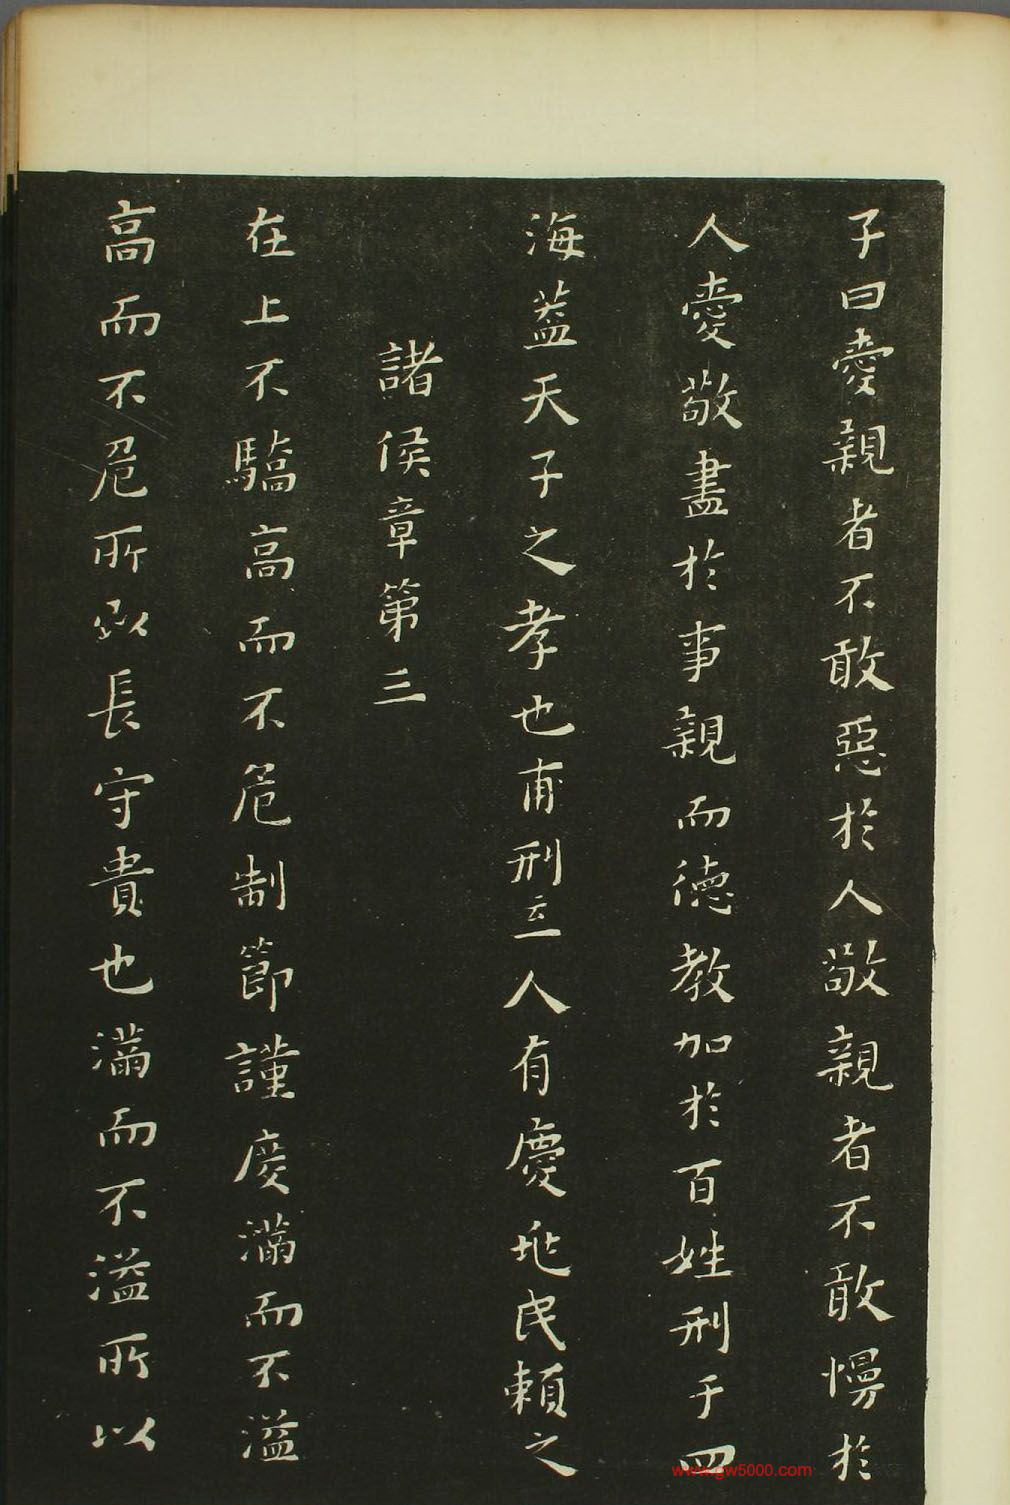 子曰愛親者不敢惡於人敬親者不敢慢於
人愛敬盡於事親而德教加於百姓刑于四
海蓋天子之孝也甫刑云一人有慶兆民賴之
諸侯章第三
在上不驕高而不危制節謹度滿而不溢
高而不危所以長守貴也滿而不溢所以
www.gw5000.com